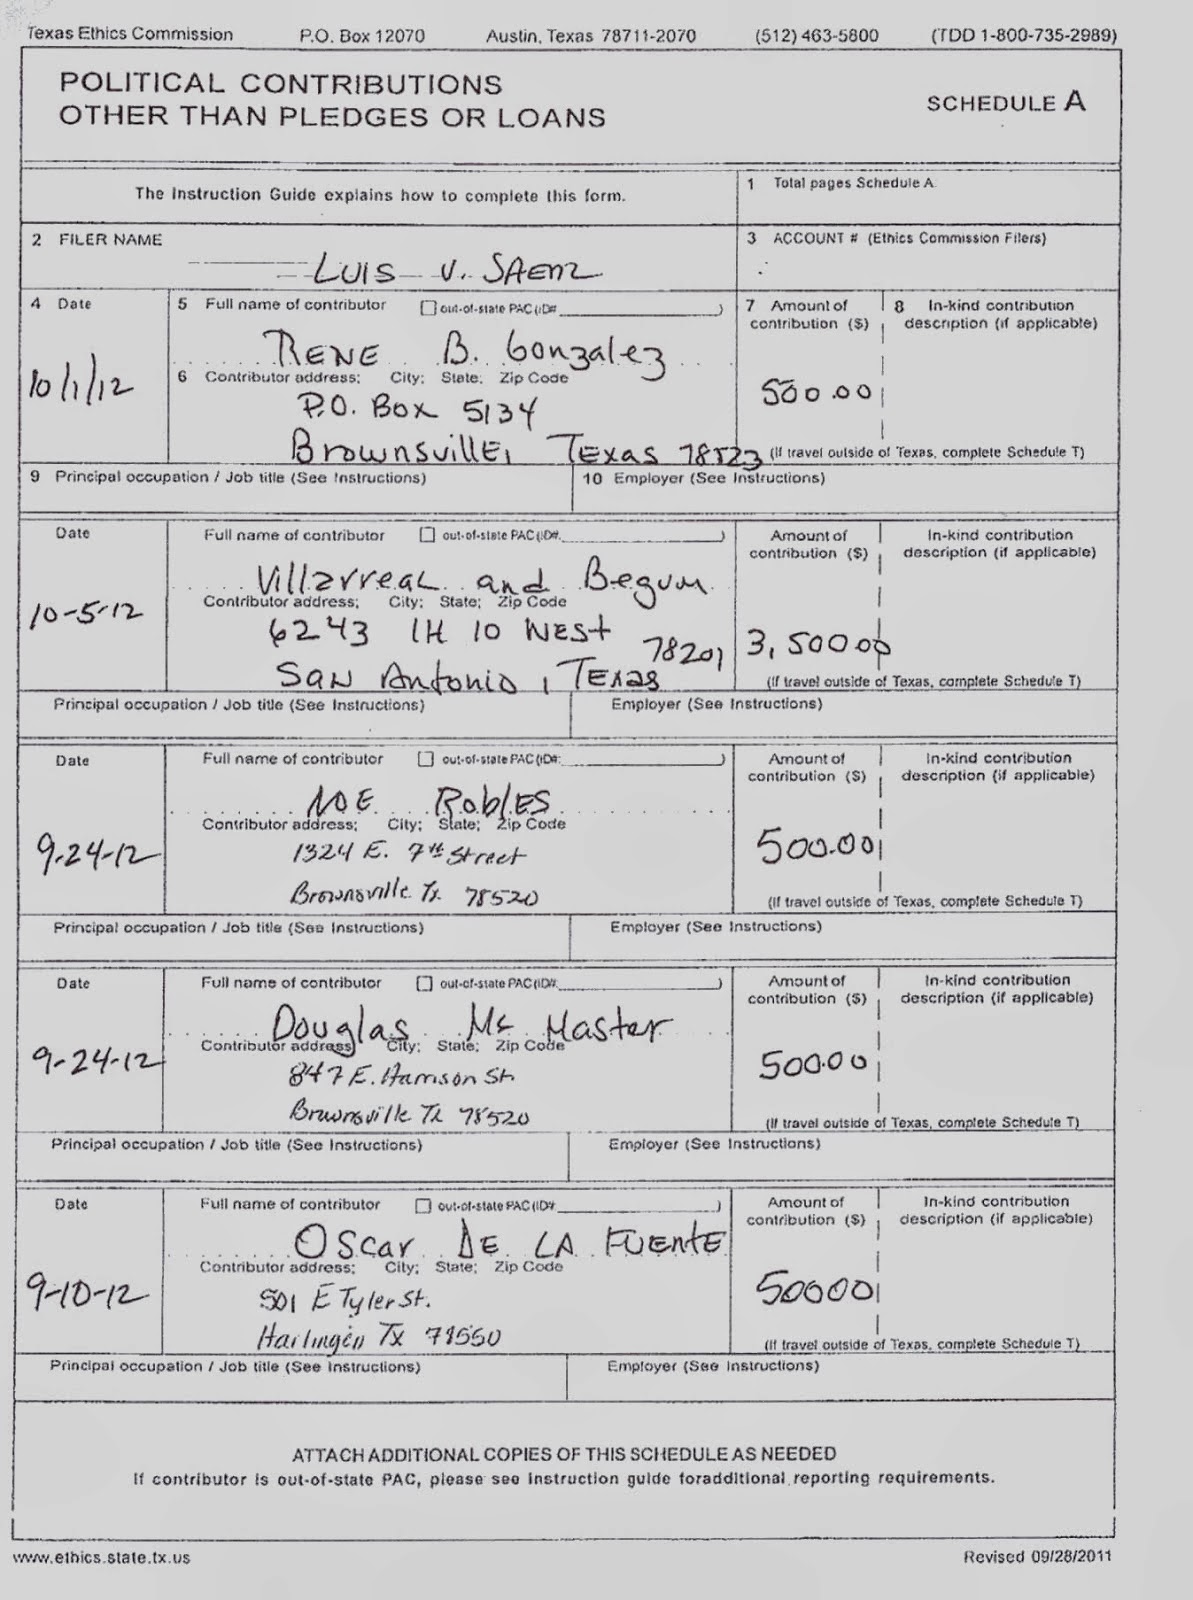 Texas Ethics Commission P.O. Box 12070 Austin, Texas 78711-2070 (512) 463-5800 (TDD 1-800-735-2989)
POLITICAL CONTRIBUTIONS
OTHER THAN PLEDGES OR LOANS
SCHEDULE A
The Instruction Guide explains how to complete this form.
1 Total pages Schedule A:
2 FILER NAME
LUIS V. SAENZ
3 ACCOUNT # (Ethics Commission Filers)
4 Date
10/1/12
5 Full name of contributor out-of-state PAC (ID#: )
RENE B. Gonzalez
6 Contributor address; City; State; Zip Code
P.O. Box 5134
Brownsville, Texas 78523
7 Amount of contribution ($)
500.00
8 In-kind contribution description (if applicable)
(If travel outside of Texas, complete Schedule T)
9 Principal occupation / Job title (See Instructions)
10 Employer (See Instructions)
Date
10-5-12
Full name of contributor out-of-state PAC (ID#: )
Villarreal and Begum
Contributor address; City; State; Zip Code
6243 IH 10 West
San Antonio, Texas 78201
Amount of contribution ($)
3,500.00
In-kind contribution description (if applicable)
(If travel outside of Texas, complete Schedule T)
Principal occupation / Job title (See Instructions)
Employer (See Instructions)
Date
9-24-12
Full name of contributor out-of-state PAC (ID#: )
NOE Robles
Contributor address; City; State; Zip Code
1324 E. 7th Street
Brownsville Tx. 78520
Amount of contribution ($)
500.00
In-kind contribution description (if applicable)
(If travel outside of Texas, complete Schedule T)
Principal occupation / Job title (See Instructions)
Employer (See Instructions)
Date
9-24-12
Full name of contributor out-of-state PAC (ID#: )
Douglas Mc Master
Contributor address; City; State; Zip Code
847 E. Harrison St.
Brownsville Tx 78520
Amount of contribution ($)
500.00
In-kind contribution description (if applicable)
(If travel outside of Texas, complete Schedule T)
Principal occupation / Job title (See Instructions)
Employer (See Instructions)
Date
9-10-12
Full name of contributor out-of-state PAC (ID#: )
Oscar DE LA FUENTE
Contributor address; City; State; Zip Code
501 E Tyler St.
Harlingen Tx 78550
Amount of contribution ($)
50000
In-kind contribution description (if applicable)
(If travel outside of Texas, complete Schedule T)
Principal occupation / Job title (See Instructions)
Employer (See Instructions)
ATTACH ADDITIONAL COPIES OF THIS SCHEDULE AS NEEDED
If contributor is out-of-state PAC, please see instruction guide foradditional reporting requirements.
www.ethics.state.tx.us
Revised 09/28/2011